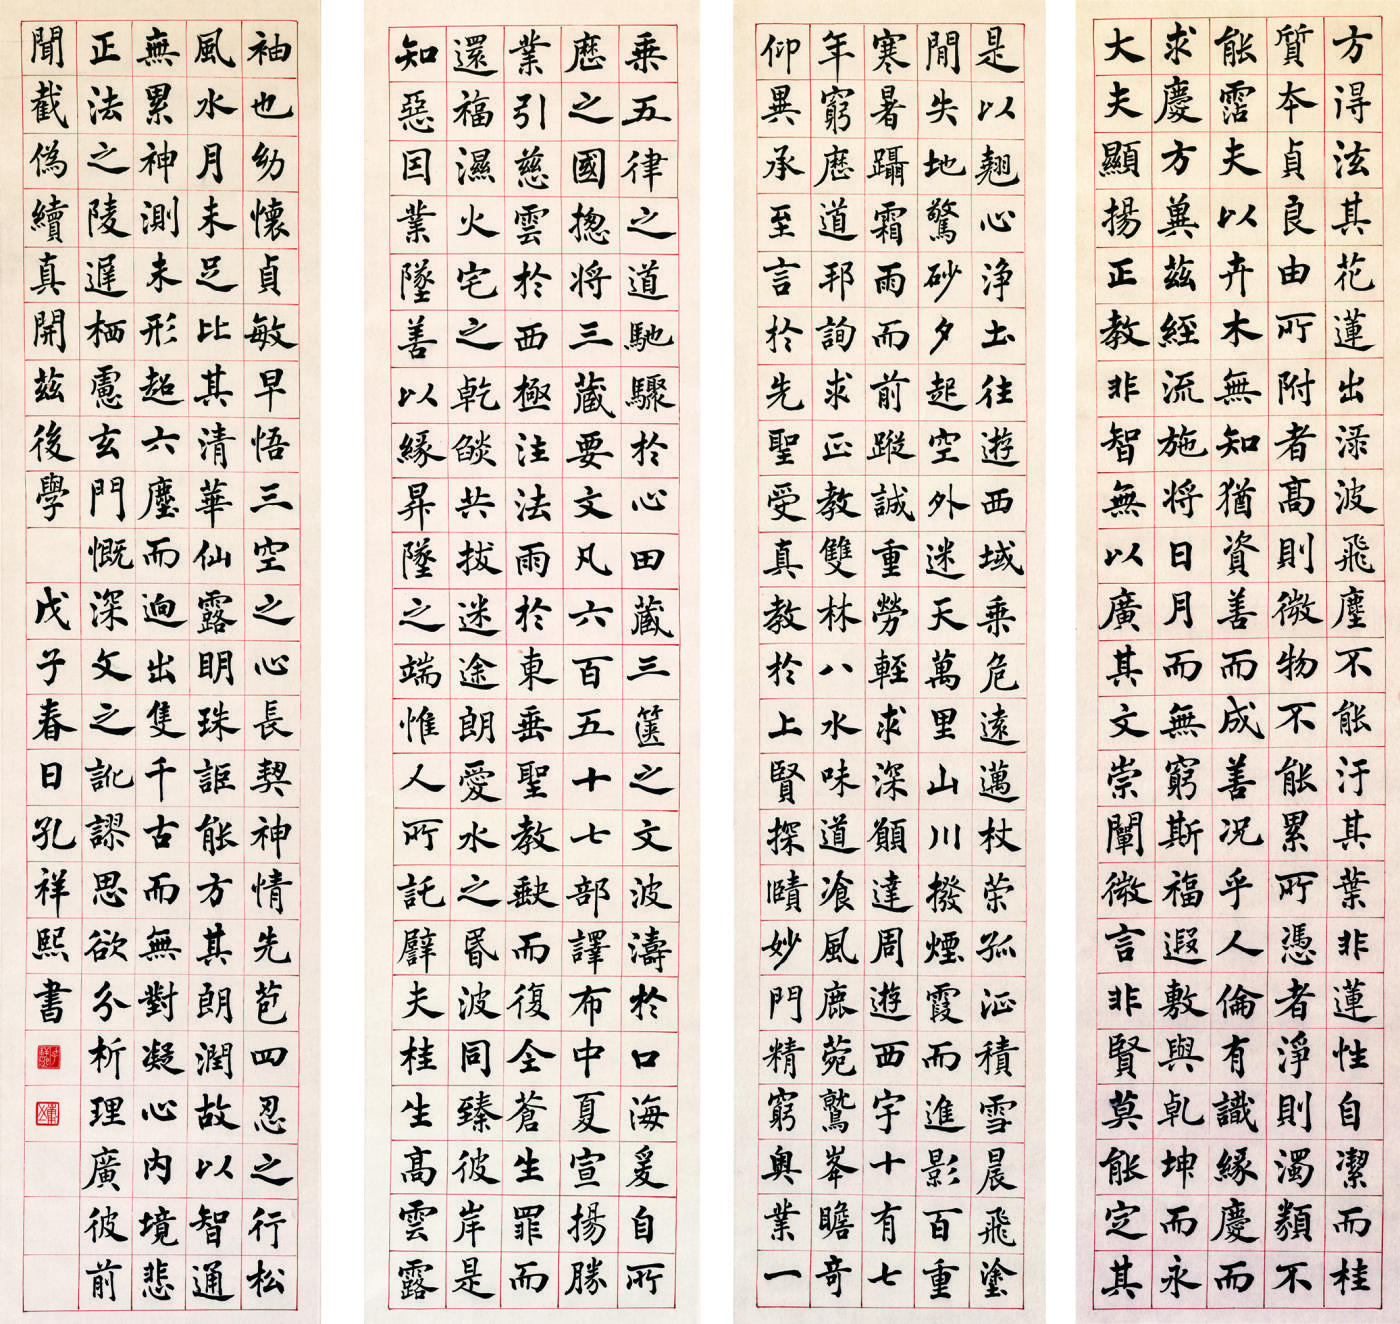 方得泫其花蓮出淥波飛塵不能汙其葉非蓮性自潔而桂
質本貞良由所附者高則微物不能累所憑者淨則濁類不
能霑夫以卉木無知猶資善而成善況乎人倫有識緣慶而
求慶方兾茲經流施将日月而無窮斯福遐敷與乹坤而永
大夫顯揚正教非智無以廣其文崇闡微言非賢莫能定其
是以翹心浄土往遊西域乗危遠邁杖策孤征積雪晨飛塗
閒失地驚砂夕起空外迷天萬里山川撥煙霞而進影百重
寒暑躡霜雨而前蹤誠重勞輕求深願達周遊西宇十有七
年窮歷道邦詢求正教雙林八水味道飡風鹿菀鷲峯瞻奇
仰異承至言於先聖受真教於上賢探賾妙門精窮奥業一
乗五律之道馳驟於心田藏三篋之文波濤於口海爰自所
歷之國揔将三藏要文凡六百五十七部譯布中夏宣揚勝
業引慈雲於西極注法雨於東垂聖教缺而復全蒼生罪而
還福濕火宅之乾焰共拔迷途朗愛水之昏波同臻彼岸是
知惡因業墜善以緣昇墜之端惟人所託譬夫桂生高雲露
袖也幼懷貞敏早悟三空之心長契神情先苞四忍之行松
風水月未足比其清華仙露明珠詎能方其朗潤故以智通
無累神測未形超六塵而迥出隻千古而無對凝心内境悲
正法之陵遲栖慮玄門慨深文之訛謬思欲分析理廣彼前
聞截偽續真開茲後學 戊子春日孔祥熙書